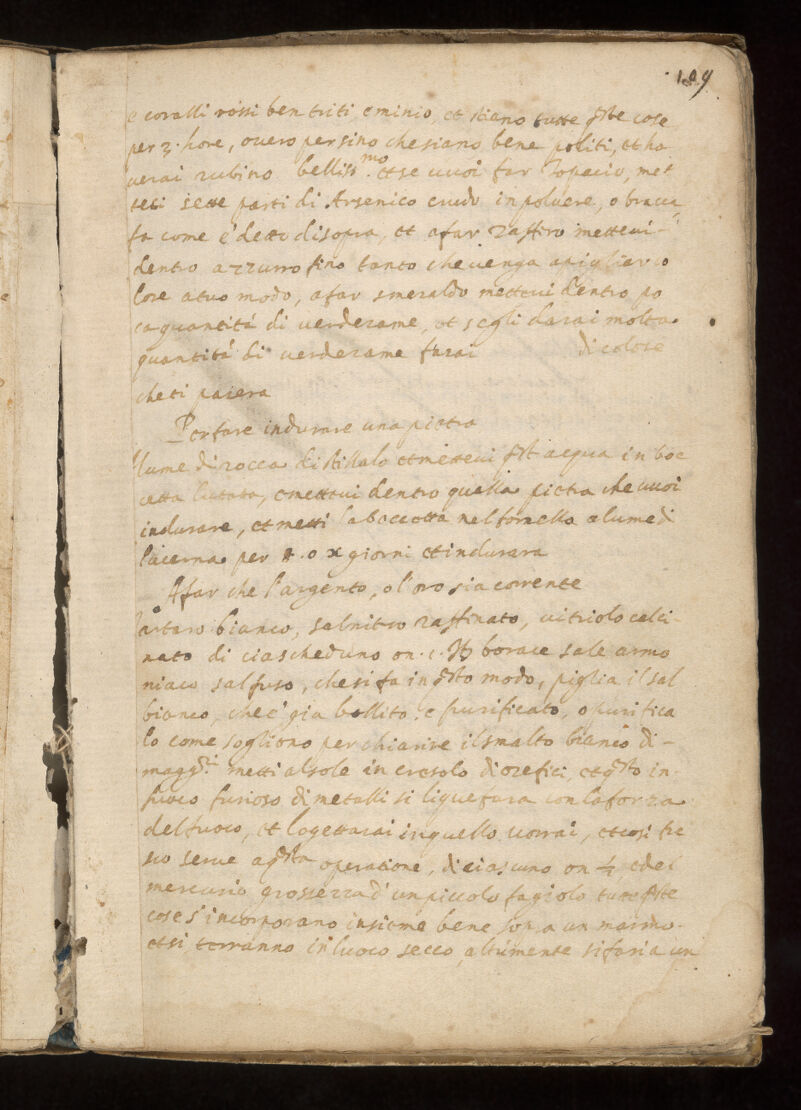 109
e coralli rossi ben triti, e minio, et stiano tutte q.ste cose
per 3. hore, ouero persino che siano bene politi, et ha
uerai rubino belliss.mo et se uuoi far Topacio, met
teci sette parti di Arsenico crudo in poluere, o bracia
fa come e' detto di sopra, et a far Zaffiro metteui-
dentro azzurro fino tanto che uenga a pigliar co
lore a tuo modo, a far smeraldo metteui dentro po
ca quantità di uerderame, et se gli darai molta
quantità di uerderame farai di colore
che ti paiera
Per fare indurare una pietra
lume di rocca distillalo et metteui q.st acqua in boc
cetta lutata, e metteui dentro quella pietra che uuoi
indurare, et metti la boccetta nel fornello a lume di
lucerna per 8. o x giorni et indurara
A far che l'argento, o l'oro sia corrente
artaro bianco, salnitro raffinato, uitriolo calci-
nato di ciascheduno on. borace sale armo
niaco sal fuso, che si fa in q.sto modo, piglia il sal
bianco, che e' gia bollito, e purificato, o purifica
lo come sogliono per chiarire il smalto bianco di-
magg.ri metti al sole in crosolo d'orefici, et q.sto in
fuoco furioso di metalli si liquefara con la forza
del fuoco, et lo gettarai in quello uorrai, et cosi fre
sco serue a q.sta operatione, di ciascuno on ½, e del
mercurio grossezza d'un piccolo fagiolo tutte q.ste
cose s'incorporano insieme bene sopra un marmo.
et si terranno in luoco secco, altrimente si faria un